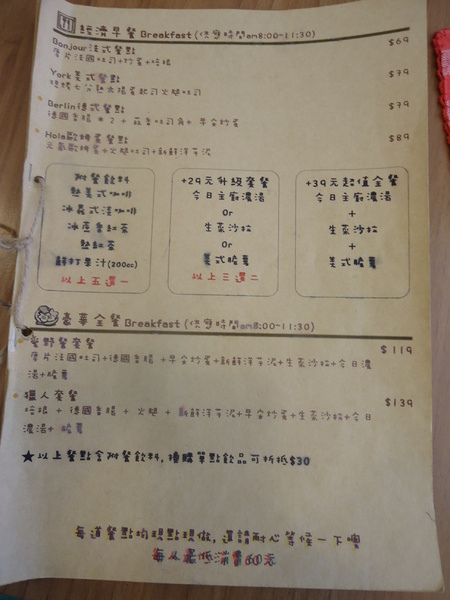 經濟早餐 Breakfast (供應時間am8:00~11:30)
Bonjour法式餐點 $69
厚片法國吐司+炒蛋+培根
York美式餐點 $79
太陽蛋 吐司
Berlin德式餐點 $79
德國香腸 * 2 + 蒜香吐司角 + 早安炒蛋
Hola歐姆蛋餐點 $89
元氣歐姆蛋+火腿吐司+新鮮洋芋泥
附餐飲料
熱美式咖啡
冰義式濃咖啡
冰屋魯紅茶
熱紅茶
鮮打果汁(200cc)
以上五選一
+29元升級套餐
今日主廚濃湯
Or
生菜沙拉
Or
美式脆薯
以上三選二
+39元超值全餐
今日主廚濃湯
+
生菜沙拉
+
美式脆薯
豪華全餐 Breakfast (供應時間am8:00~11:30)
星野饗套餐 $119
厚片法國吐司+德國香腸 +早安炒蛋+新鮮洋芋泥+生菜沙拉+今日濃
湯+脆薯
獵人套餐 $139
培根 + 德國香腸 + 火腿 + 新鮮洋芋泥+早安炒蛋+生菜沙拉+今日
濃湯+ 脆薯
★以上餐點含附餐飲料,換購單點飲品可折抵$30
每道餐點均現點現做,還請耐心等候一下噢
每人最低消費60元